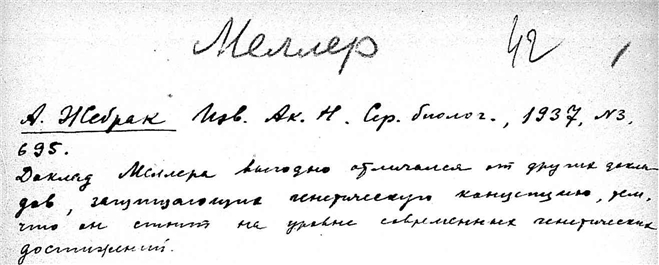 Меллер 42 1
А. Жебрак Изв. Ак. Н. Сер. биолог., 1937, №3,
695.
Доклад Меллера выгодно отличался от других докла-
дов, защищающих генетическую концепцию, тем,
что он стоит на уровне современных генетических
достижений.